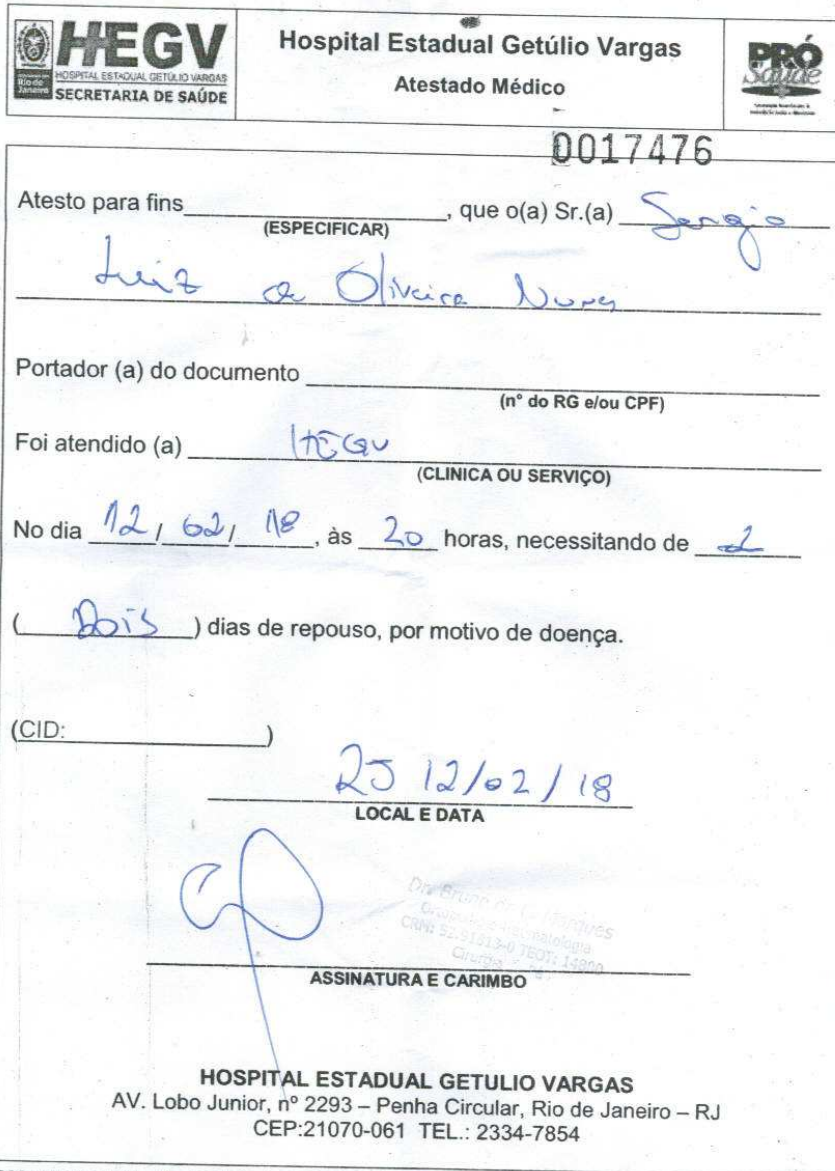 HEGV
HOSPITAL ESTADUAL GETULIO VARGAS
Rio de Janeiro
SECRETARIA DE SAÚDE
Hospital Estadual Getúlio Vargas
Atestado Médico
PRÓ
Saúde
0017476
Atesto para fins____________, que o(a) Sr.(a) Sergio
(ESPECIFICAR)
Luiz de Oliveira Nunes
Portador (a) do documento ____________
(nº do RG e/ou CPF)
Foi atendido (a) HEGV
(CLINICA OU SERVIÇO)
No dia 12/02/18, às 20 horas, necessitando de 2
(Dois) dias de repouso, por motivo de doença.
(CID:____________)
RJ 12/02/18
LOCAL E DATA
Dr. Bruno C. Marques
CRM: 52.91513-0 TEOT: 14800
ASSINATURA E CARIMBO
HOSPITAL ESTADUAL GETULIO VARGAS
AV. Lobo Junior, nº 2293 – Penha Circular, Rio de Janeiro – RJ
CEP:21070-061 TEL.: 2334-7854